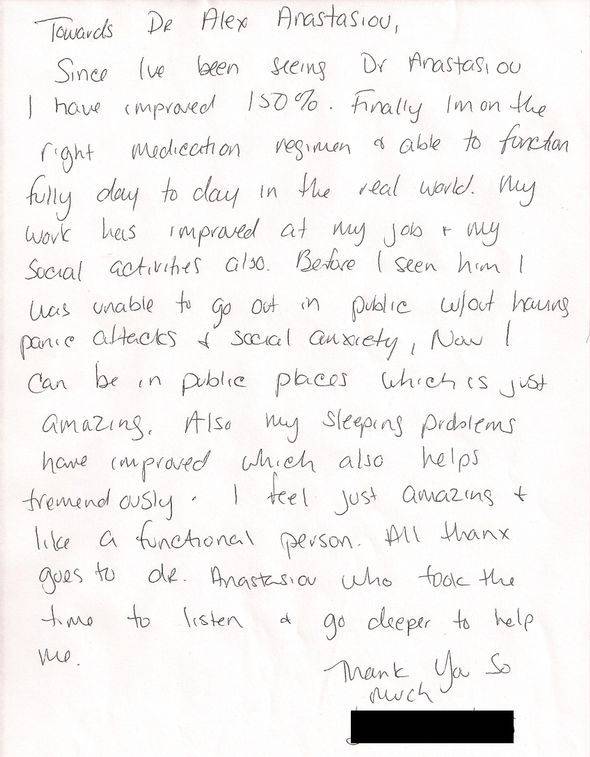 Towards Dr Alex Anastasiou,
Since Ive been seeing Dr Anastasiou
I have improved 150%. Finally Im on the
right medication regimen & able to function
fully day to day in the real world. My
work has improved at my job + my
Social activities also. Before I seen him I
was unable to go out in public w/out having
panic attacks & social anxiety, Now I
can be in public places which is just
amazing. Also my sleeping problems
have improved which also helps
tremendously. I feel just amazing +
like a functional person. All thanx
goes to dr. Anastasiou who took the
time to listen & go deeper to help
me.
Thank Ya So
much